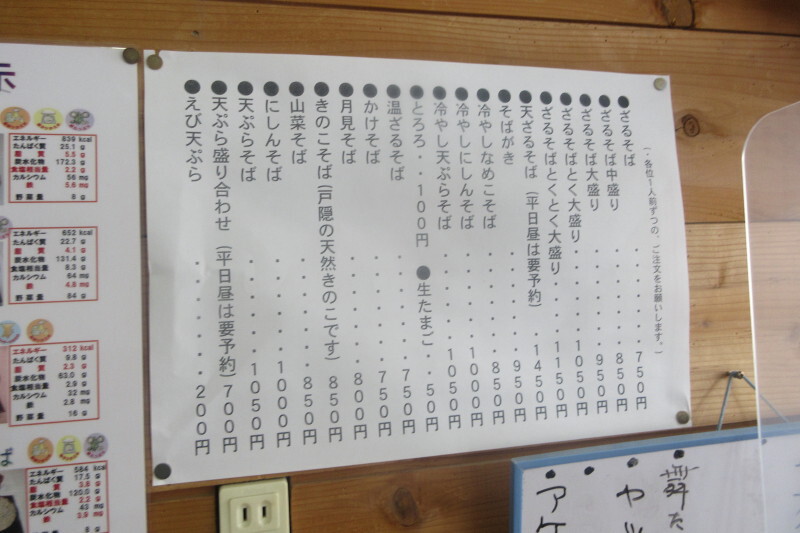 (・各位1人前ずつの、ご注文をお願いします。)
●ざるそば・・・・・・・750円
●ざるそば中盛り・・・・・・850円
●ざるそば大盛り・・・・・・950円
●ざるそばとく大盛り・・・・・1050円
●ざるそばとくとく大盛り・・・・1150円
●天ざるそば (平日昼は要予約)・・1450円
●そばがき・・・・・・・950円
●冷やしなめこそば・・・・・・850円
●冷やしにしんそば・・・・・・1000円
●冷やし天ぷらそば・・・・・・1050円
●とろろ・・100円 ●生たまご・・50円
●温ざるそば・・・・・・・750円
●かけそば・・・・・・・750円
●月見そば・・・・・・・800円
●きのこそば(戸隠の天然きのこです) 850円
●山菜そば・・・・・・・850円
●にしんそば・・・・・・・1000円
●天ぷらそば・・・・・・・1050円
●天ぷら盛り合わせ (平日昼は要予約) 700円
●えび天ぷら・・・・・・・200円
示
エネルギー 839 kcal
たんぱく質 25.1 g
脂質 5.5 g
炭水化物 172.3 g
食塩相当量 2.2 g
カルシウム 56 mg
鉄 5.6 mg
野菜量 8 g
エネルギー 652 kcal
たんぱく質 22.7 g
脂質 4.1 g
炭水化物 131.4 g
食塩相当量 8.3 g
カルシウム 64 mg
鉄 4.8 mg
野菜量 84 g
エネルギー 312 kcal
たんぱく質 9.8 g
脂質 2.3 g
炭水化物 63.0 g
食塩相当量 2.9 g
カルシウム 32 mg
鉄 2.8 mg
野菜量 16 g
ば
エネルギー 584 kcal
たんぱく質 17.5 g
脂質 3.8 g
炭水化物 120.0 g
食塩相当量 2.2 g
カルシウム 43 mg
鉄 3.9 mg
野菜量 8 g
舞た
ヤッ
アケ